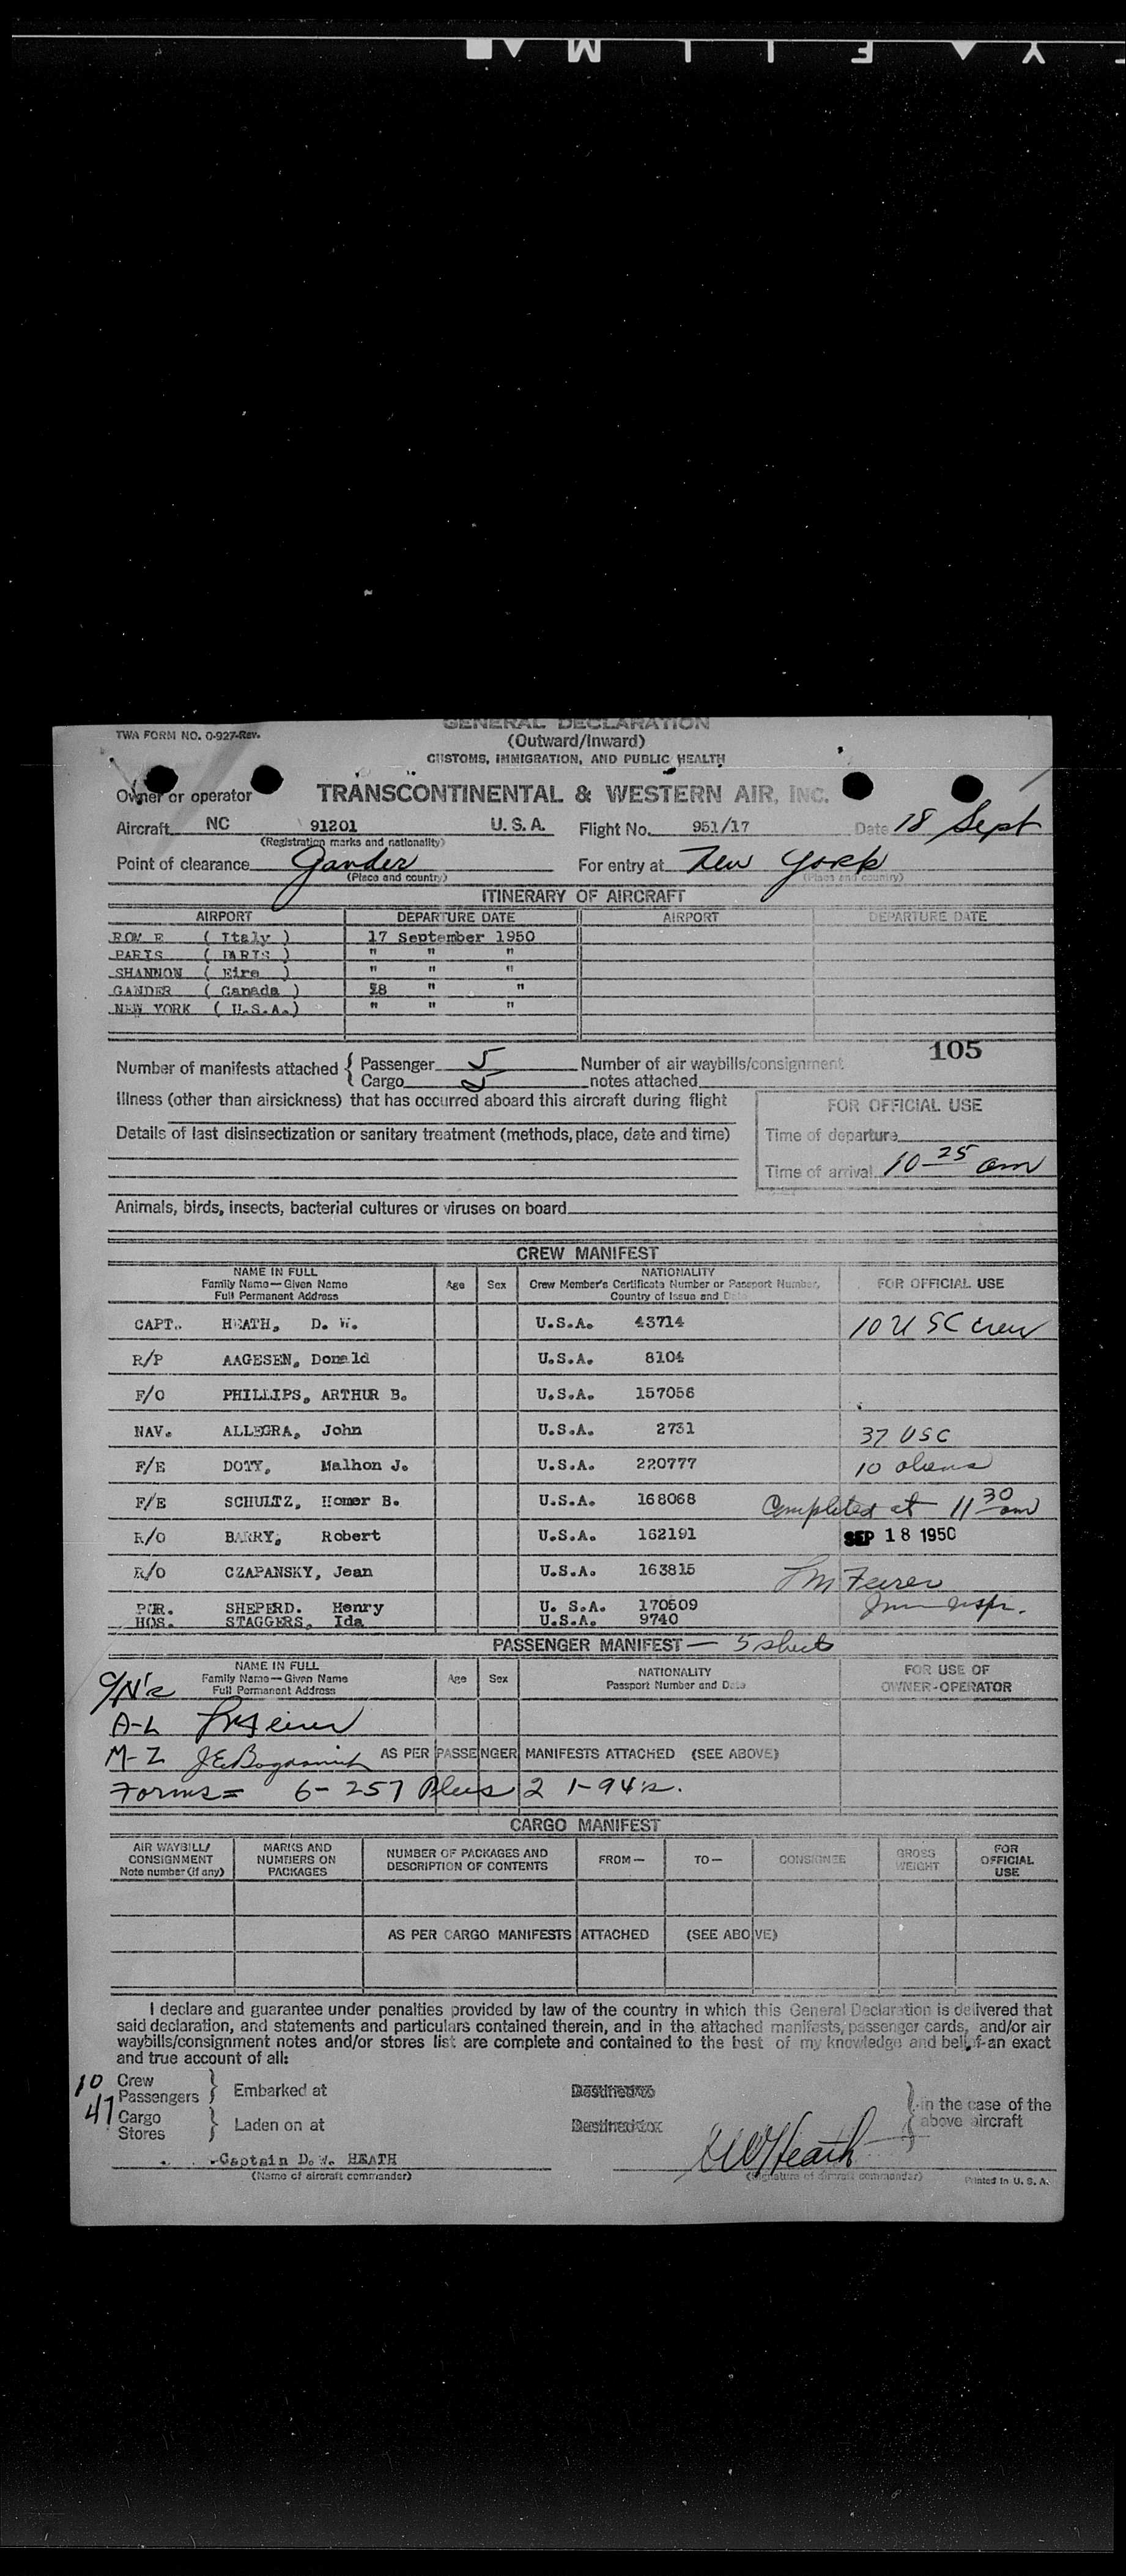 Y F I L M
GENERAL DECLARATION
TWA FORM NO. 0-927-Rev.
(Outward/Inward)
CUSTOMS, IMMIGRATION, AND PUBLIC HEALTH
Owner or operator TRANSCONTINENTAL & WESTERN AIR, INC.
Aircraft NC 91201 U.S.A. Flight No. 951/17 Date 18 Sept
(Registration marks and nationality)
Point of clearance Gander For entry at New York
(Place and country) (Place and country)
ITINERARY OF AIRCRAFT
AIRPORT DEPARTURE DATE AIRPORT DEPARTURE DATE
ROM E ( Italy ) 17 September 1950
PARIS ( PARIS ) " " "
SHANNON ( Eire ) " " "
GANDER ( Canada ) 18 " "
NEW YORK ( U.S.A.) " " "
105
Number of manifests attached { Passenger 5 Number of air waybills/consignment
Cargo 5 notes attached
Illness (other than airsickness) that has occurred aboard this aircraft during flight
FOR OFFICIAL USE
Details of last disinsectization or sanitary treatment (methods, place, date and time)
Time of departure
Time of arrival 10 25 am
Animals, birds, insects, bacterial cultures or viruses on board
CREW MANIFEST
NAME IN FULL
Family Name—Given Name
Full Permanent Address
Age Sex
NATIONALITY
Crew Member's Certificate Number or Passport Number,
Country of Issue and Date
FOR OFFICIAL USE
CAPT. HEATH, D. W. U.S.A. 43714 10 USC crew
R/P AAGESEN, Donald U.S.A. 8104
F/O PHILLIPS, ARTHUR B. U.S.A. 157056
NAV. ALLEGRA, John U.S.A. 2731 37 USC
F/E DOTY, Malhon J. U.S.A. 220777 10 aliens
F/E SCHULTZ, Homer B. U.S.A. 168068 Completed at 11 30 am
R/O BARRY, Robert U.S.A. 162191 SEP 18 1950
R/O CZAPANSKY, Jean U.S.A. 163815
PUR. SHEPERD. Henry U. S.A. 170509 Imm Inspr.
HOS. STAGGERS, Ida U.S.A. 9740
PASSENGER MANIFEST — 5 sheets
NAME IN FULL
Family Name—Given Name
Full Permanent Address
Age Sex
NATIONALITY
Passport Number and Date
FOR USE OF
OWNER-OPERATOR
A-L
M-Z AS PER PASSENGER MANIFESTS ATTACHED (SEE ABOVE)
Forms = 6- 257 Plus 2 I-94's.
CARGO MANIFEST
AIR WAYBILL/
CONSIGNMENT
Note number (if any)
MARKS AND
NUMBERS ON
PACKAGES
NUMBER OF PACKAGES AND
DESCRIPTION OF CONTENTS
FROM— TO— CONSIGNEE
GROSS
WEIGHT
FOR
OFFICIAL
USE
AS PER CARGO MANIFESTS ATTACHED (SEE ABOVE)
I declare and guarantee under penalties provided by law of the country in which this General Declaration is delivered that
said declaration, and statements and particulars contained therein, and in the attached manifests, passenger cards, and/or air
waybills/consignment notes and/or stores list are complete and contained to the best of my knowledge and belief an exact
and true account of all:
10 Crew
47 Passengers } Embarked at Destined to
Cargo
Stores } Laden on at Destined to
} in the case of the
above aircraft
Captain D. W. HEATH DW Heath
(Name of aircraft commander) (Signature of aircraft commander)
Printed in U. S. A.